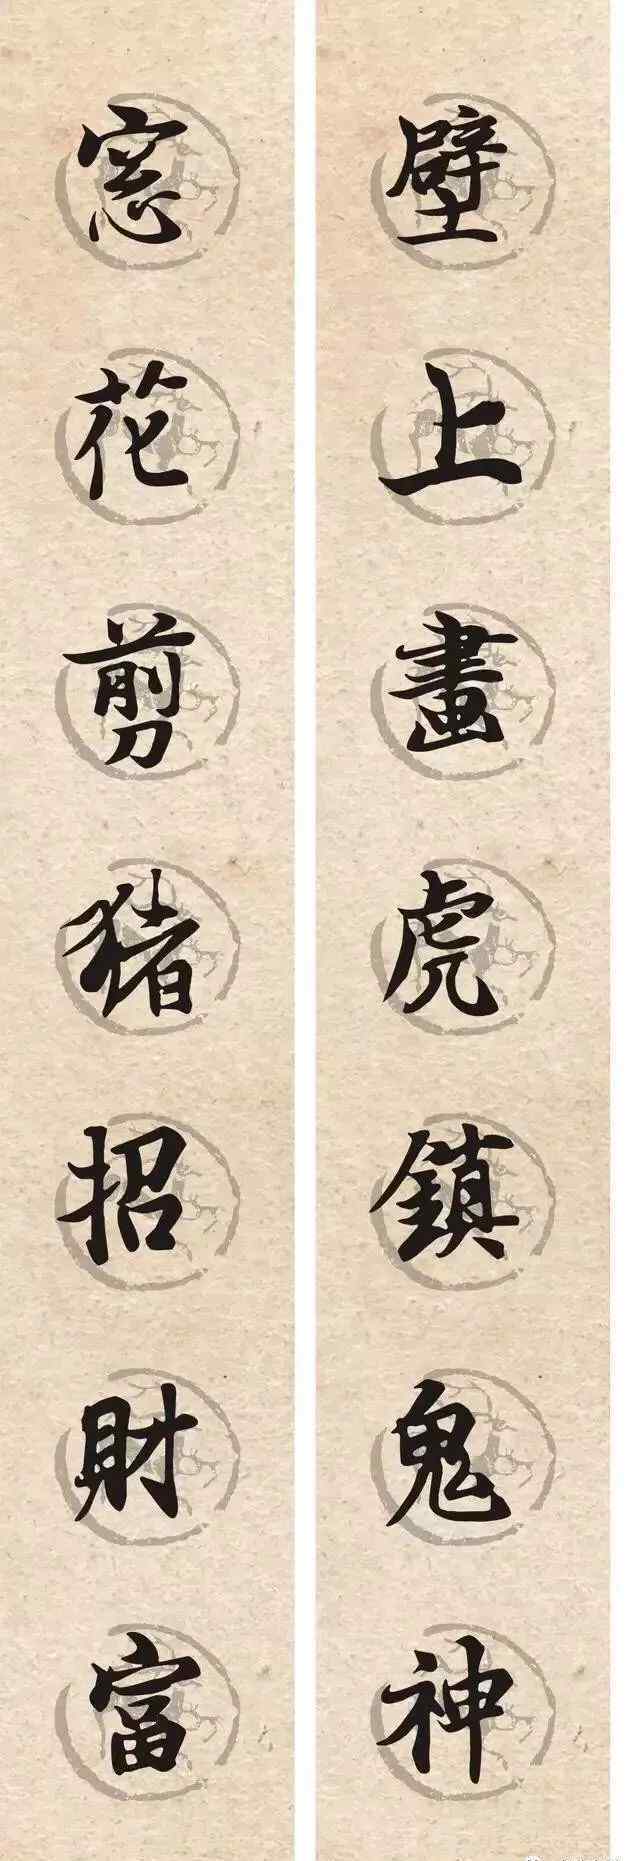 壁上畫虎鎮鬼神
窓花剪猪招財富